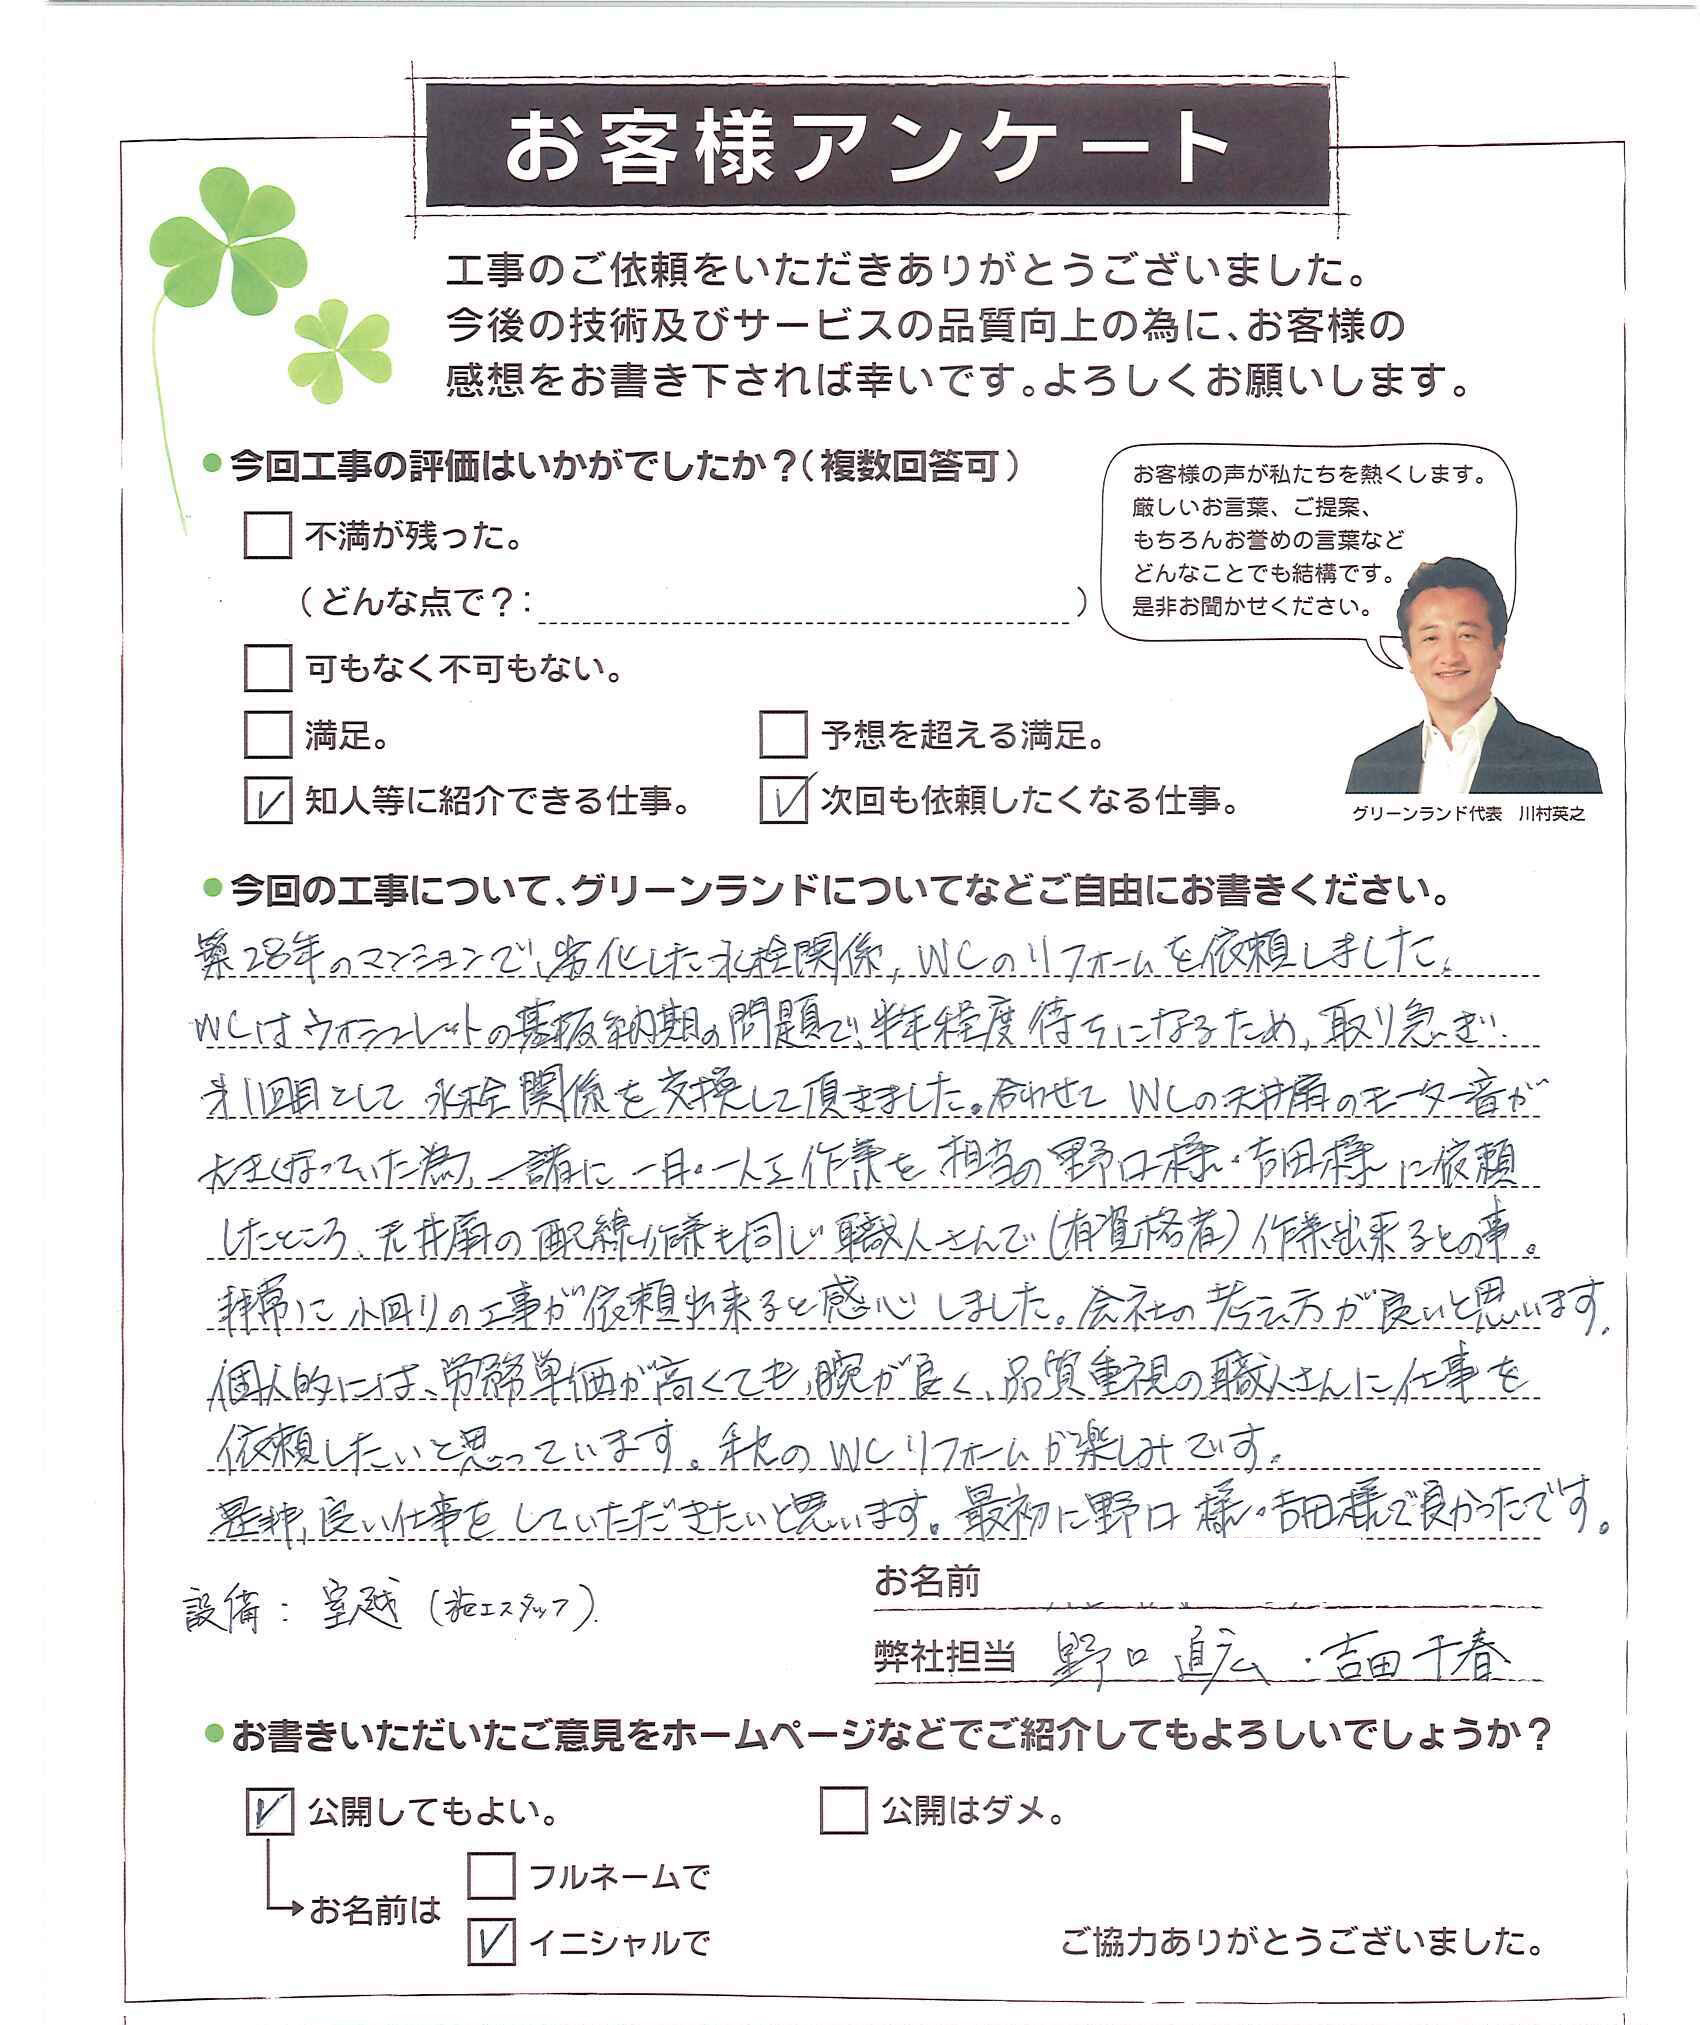 お客様アンケート
工事のご依頼をいただきありがとうございました。
今後の技術及びサービスの品質向上の為に、お客様の
感想をお書き下されば幸いです。よろしくお願いします。
●今回工事の評価はいかがでしたか？（複数回答可）
不満が残った。
（どんな点で？：　　　）
可もなく不可もない。
満足。
予想を超える満足。
知人等に紹介できる仕事。
次回も依頼したくなる仕事。
お客様の声が私たちを熱くします。
厳しいお言葉、ご提案、
もちろんお誉めの言葉など
どんなことでも結構です。
是非お聞かせください。
グリーンランド代表　川村英之
●今回の工事について、グリーンランドについてなどご自由にお書きください。
築28年のマンションで、劣化した水栓関係，WCのリフォームを依頼しました。
WCはウォシュレットの基板納期の問題で、半年程度待ちになるため，取り急ぎ
第1回目として水栓関係を交換して頂きました。合わせてWCの天井扇のモーター音が
大きくなっていた為，一諸に一日・一人工作業を担当の野口様・吉田様に依頼
したところ、天井扇の配線作業も同じ職人さんで（有資格者）作業出来るとの事。
非常に小回りの工事が依頼出来ると感心しました。会社の考え方が良いと思います。
個人的には、労務単価が高くても，腕が良く、品質重視の職人さんに仕事を
依頼したいと思っています。秋のWCリフォームが楽しみです。
是非，良い仕事をしていただきたいと思います。最初に野口様・吉田様で良かったです。
設備：室越（施工スタッフ）
お名前
弊社担当　野口直広・吉田千春
●お書きいただいたご意見をホームページなどでご紹介してもよろしいでしょうか？
公開してもよい。
公開はダメ。
お名前は
フルネームで
イニシャルで
ご協力ありがとうございました。